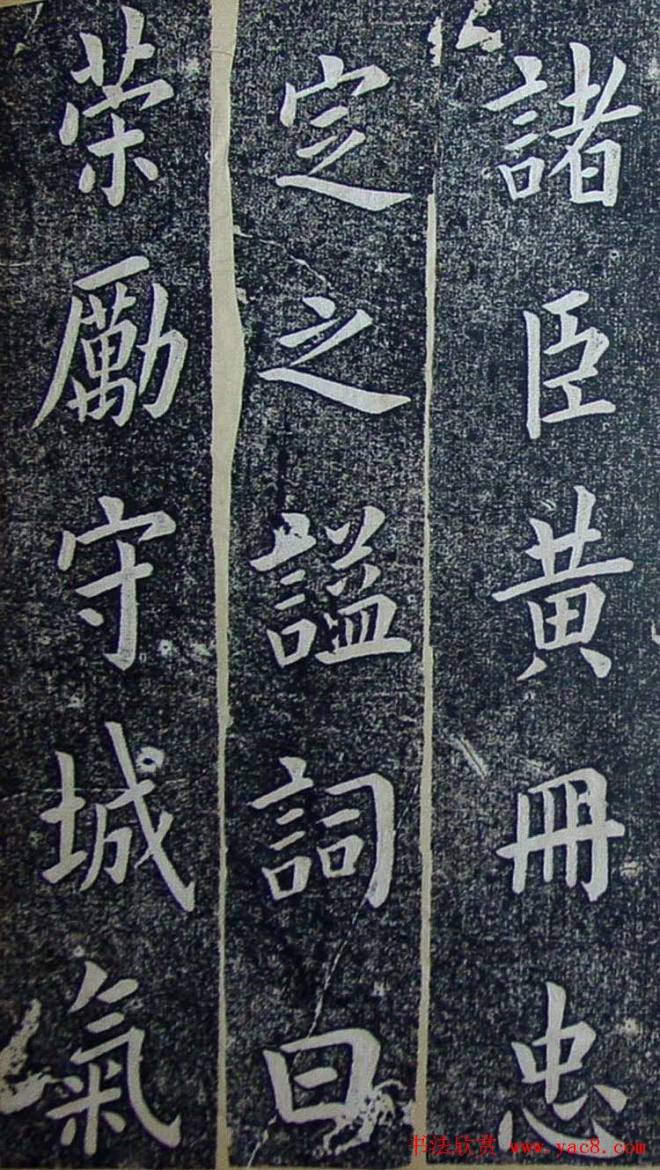 諸臣黃冊忠
定之謚詞曰
荣勵守城氣
书法欣赏 www.yac8.com